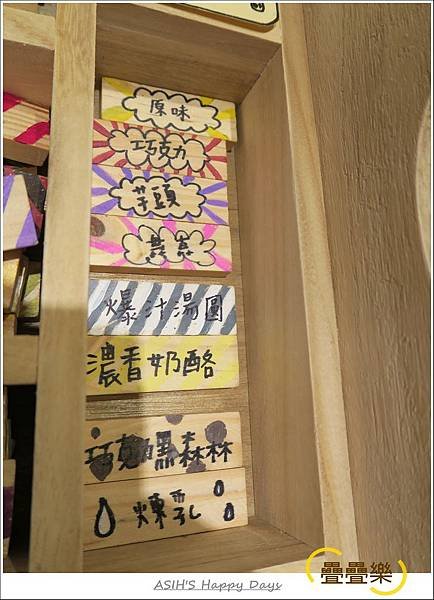 原味
巧克力
芋頭
爆汁湯圓
濃香奶酪
巧克黑森林
煉乳
ASIH'S Happy Days
疊疊樂